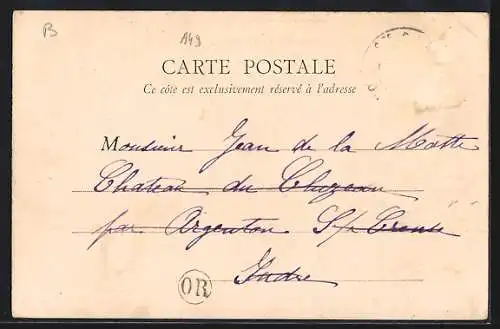 B
A49
CARTE POSTALE
Ce côté est exclusivement réservé à l'adresse
Monsieur Jean de la Motte
Chateau du Cluzeau
par Argenton S/ Creuse
Indre
OR